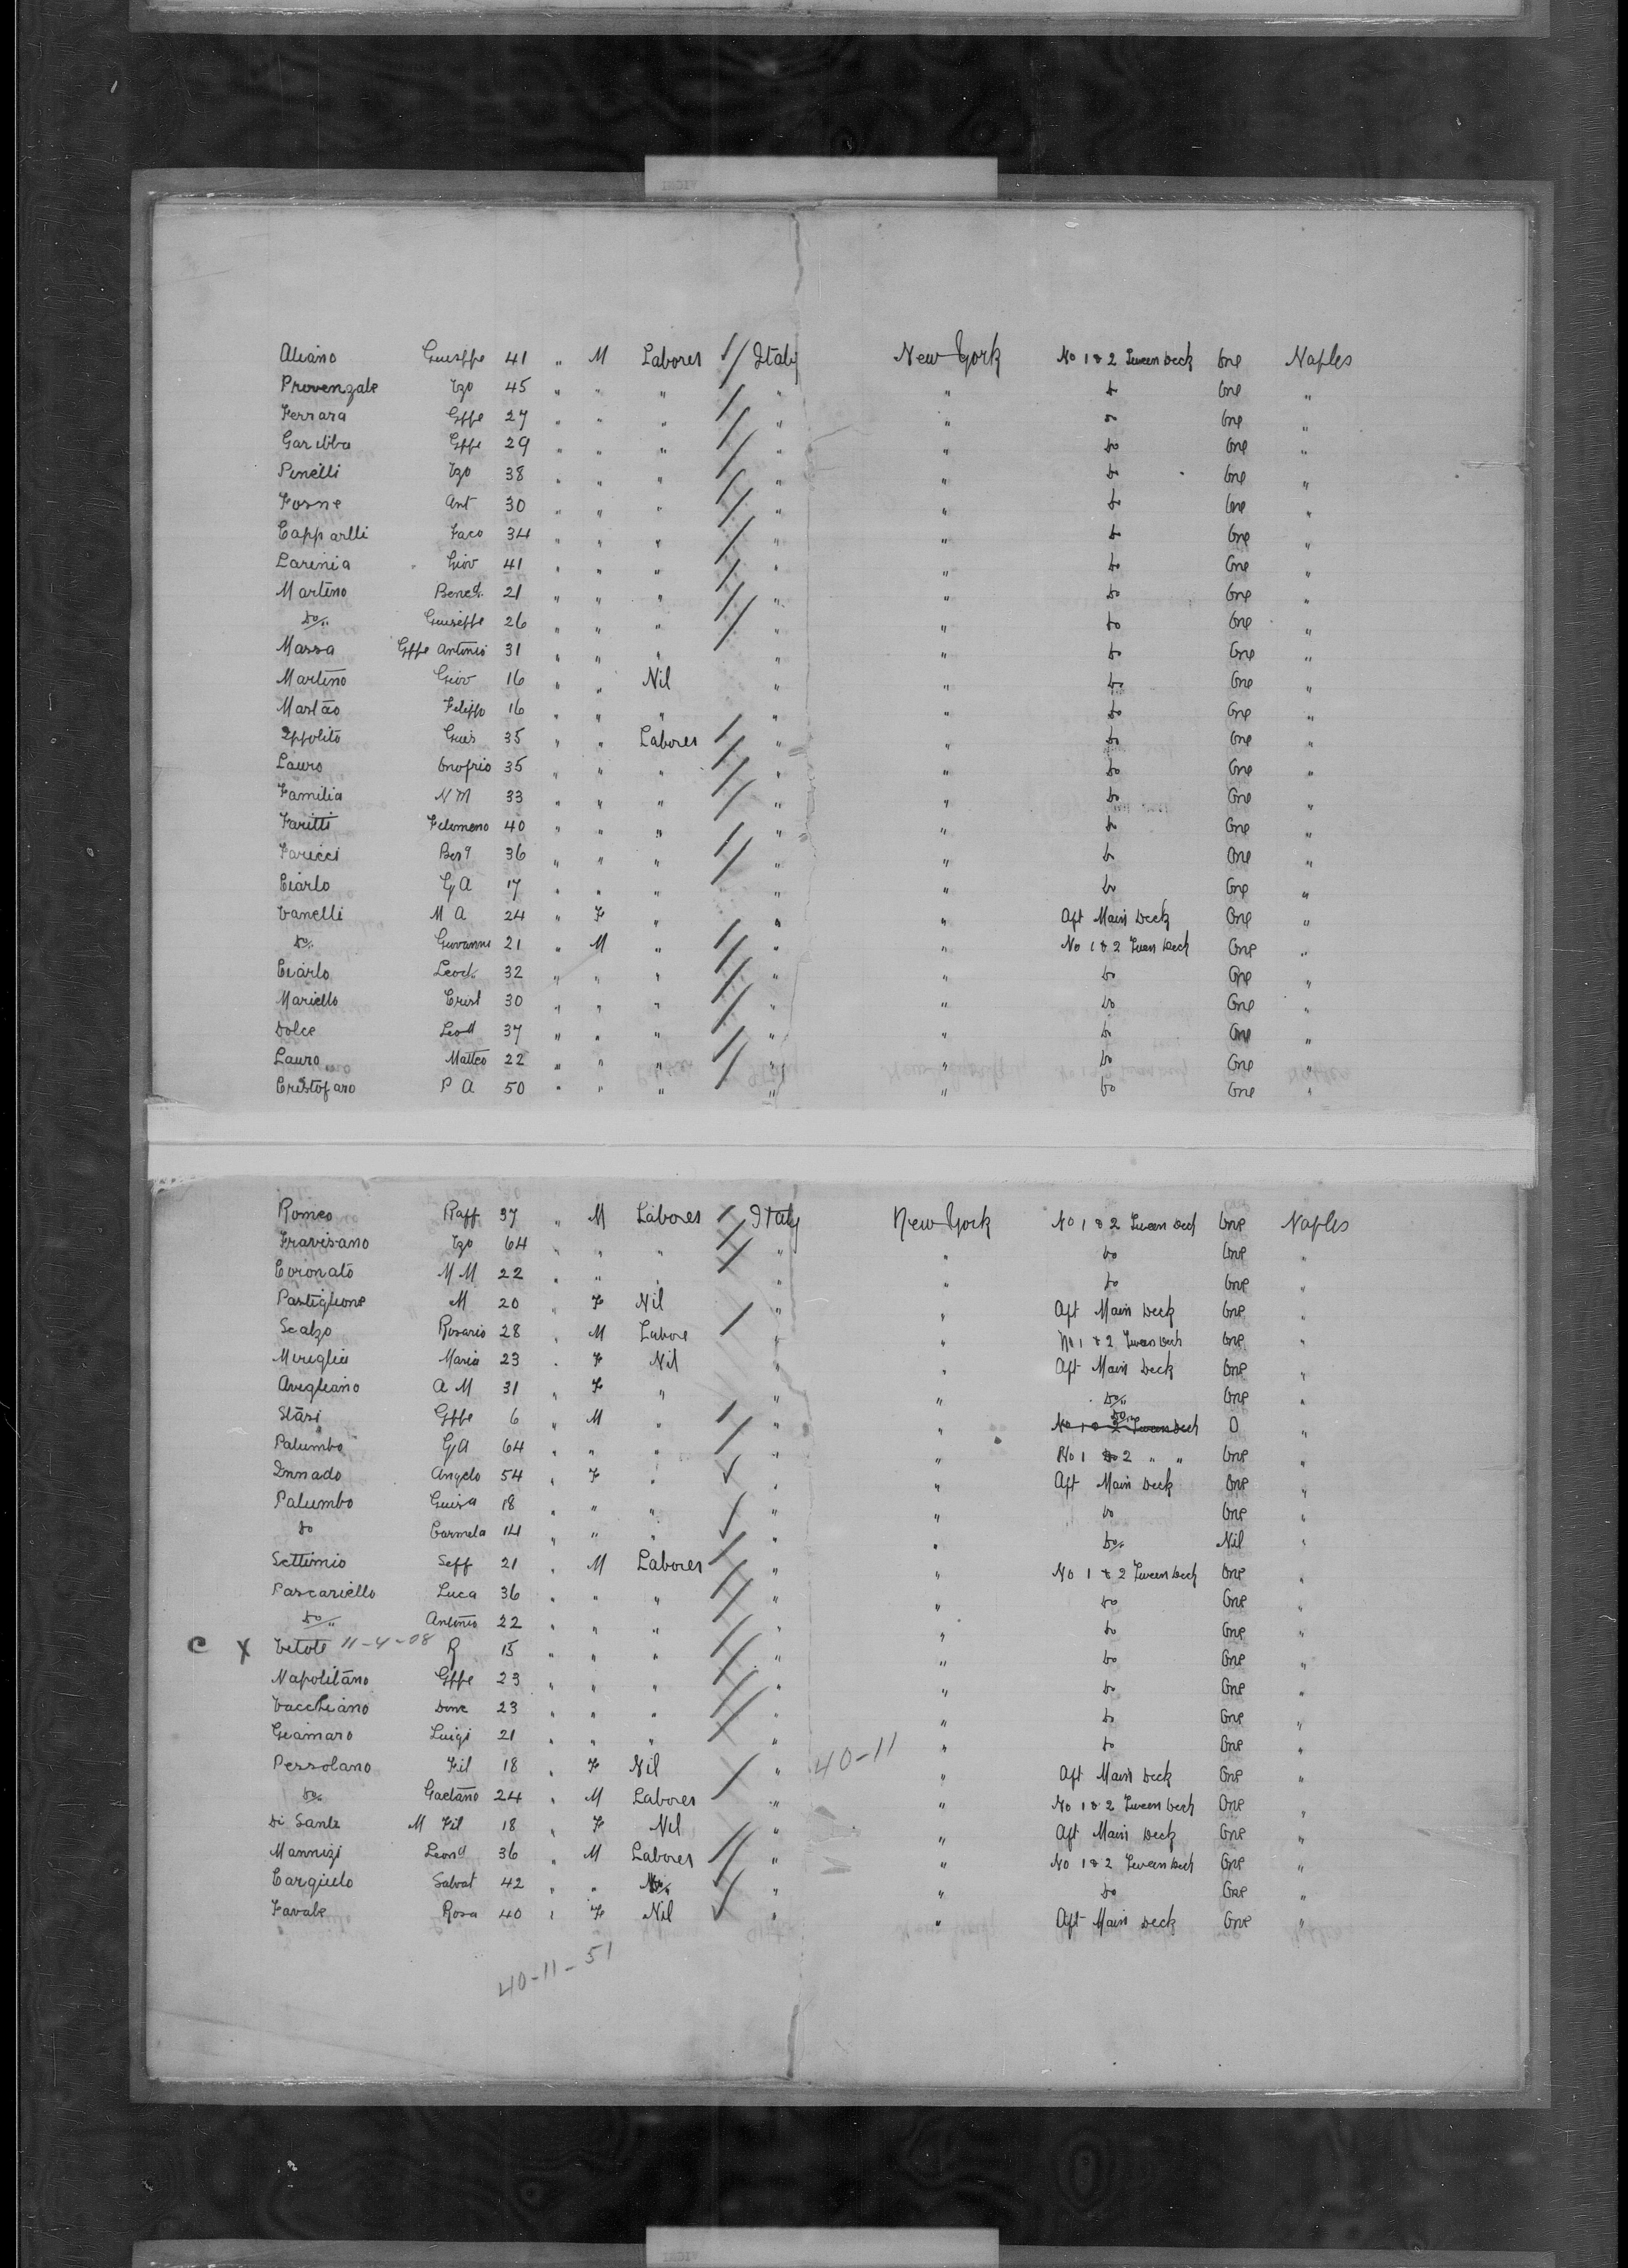 Aliano Giuseppe 41 " M Labores Italy New York No 1 & 2 Tween Deck One Naples
Provenzale Vzo 45 " " " " " Do One "
Ferrara Gppe 27 " " " " " Do One "
Garibba Gppe 29 " " " " " Do One "
Penelli Vzo 38 " " " " " Do One "
Fosne Ant 30 " " " " " Do One "
Capparlli Faco 34 " " " " " Do One "
Larinia Giov 41 " " " " " Do One "
Martino Bened. 21 " " " " " Do One "
Do Giuseppe 26 " " " " " Do One "
Massa Gppe Antonio 31 " " " " " Do One "
Martino Giov 16 " " Nil " " Do One "
Filippo 16 " " " " " Do One "
Ippolito 35 " " Labores " " Do One "
Lauro Onofrio 35 " " " " " Do One "
Familia N M 33 " " " " " Do One "
Faritti Filomeno 40 " " " " " Do One "
Faricci 36 " " " " " Do One "
Ciarlo G A 17 " " " " " Do One "
Vanelli M A 24 " F " " " Aft Main Deck One "
Do Giovanni 21 " M " " " No 1 & 2 Tween Deck One "
Ciarlo Leod. 32 " " " " " Do One "
Mariello Crist 30 " " " " " Do One "
Dolce 37 " " " " " Do One "
Lauro Matteo 22 " " " " " Do One "
Cristofaro P A 50 " " " " " Do One "
Romeo Raff 37 " M Labores Italy New York No 1 & 2 Tween Deck One Naples
Travisano Vzo 64 " " " " " Do One "
Coronato M M 22 " " " " " Do One "
Pastiglione M 20 " F Nil " " Aft Main Deck One "
Scalzo Rosario 28 " M Labore " " No 1 & 2 Tween Deck One "
Mireglia Maria 23 " F Nil " " Aft Main Deck One "
Avigliano A M 31 " F " " " Do One "
Stasi Gppe 6 " M " " " No 1 & 2 Tween Deck Do O "
Palumbo G A 64 " " " " " No 1 & 2 " " One "
Innado Angelo 54 " F " " " Aft Main Deck One "
Palumbo Guisa 18 " " " " " Do One "
Do Carmela 14 " " " " " Do Nil "
Settimio Seff 21 " M Labores " " No 1 & 2 Tween Deck One "
Pascariello Luca 36 " " " " " Do One "
Do Antonio 22 " " " " " Do One "
C X 11-4-08 R 15 " " " " " Do One "
Napolitano Gppe 23 " " " " " Do One "
Vacchiano Dome 23 " " " " " Do One "
Giamaro Luigi 21 " " " " " Do One "
Pessolano Fil 18 " F Nil " 40-11 " Aft Main Deck One "
Do Gaetano 24 " M Labores " " No 1 & 2 Tween Deck One "
Di Sante M Fil 18 " F Nil " " Aft Main Deck One "
Mannizi Leond 36 " M Labores " " No 1 & 2 Tween Deck One "
Salvat 42 " " Do " " Do One "
Favale Rosa 40 " F Nil " " Aft Main Deck One "
40-11-51